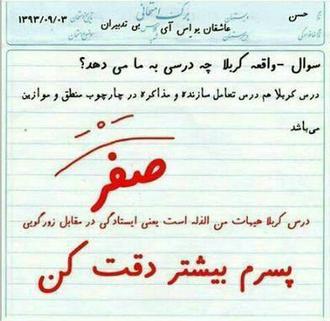 نام حسن دبستان برگ امتحانی تاریخ امتحان ۱۳۹۳/۰۹/۰۳
نام خانوادگی عاشقان یو اس آی بی تدبیران موضوع امتحان
سوال -واقعه کربلا چه درسی به ما می دهد؟
درس کربلا هم درس تعامل سازنده و مذاکره در چارچوب منطق و موازین
می‌باشد
صفر
درس کربلا هیهات من الذله است یعنی ایستادگی در مقابل زورگویی
پسرم بیشتر دقت کن